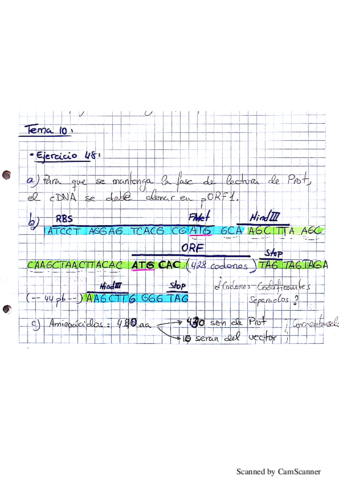 Tema 10:
• Ejercicio 48:
a) Para que se mantenga la fase de lectura de Prot,
el cDNA se debe clonar en pORF1.
b) RBS FMet HindIII
ATCCT AGGAG TCACG CG ATG GCA AGC TTA AGC
ORF Stop
CAAGCTAACTTACAC ATG CAC (428 codones) TAG TAGTAGA
HindIII Stop ¿Codones Codificantes
(-- 44 pb --) AAGCTTG GGG TAG Sepamelos?
c) Aminoácidos: aa → 430 son de Prot
→ 10 serán del vector
Scanned by CamScanner